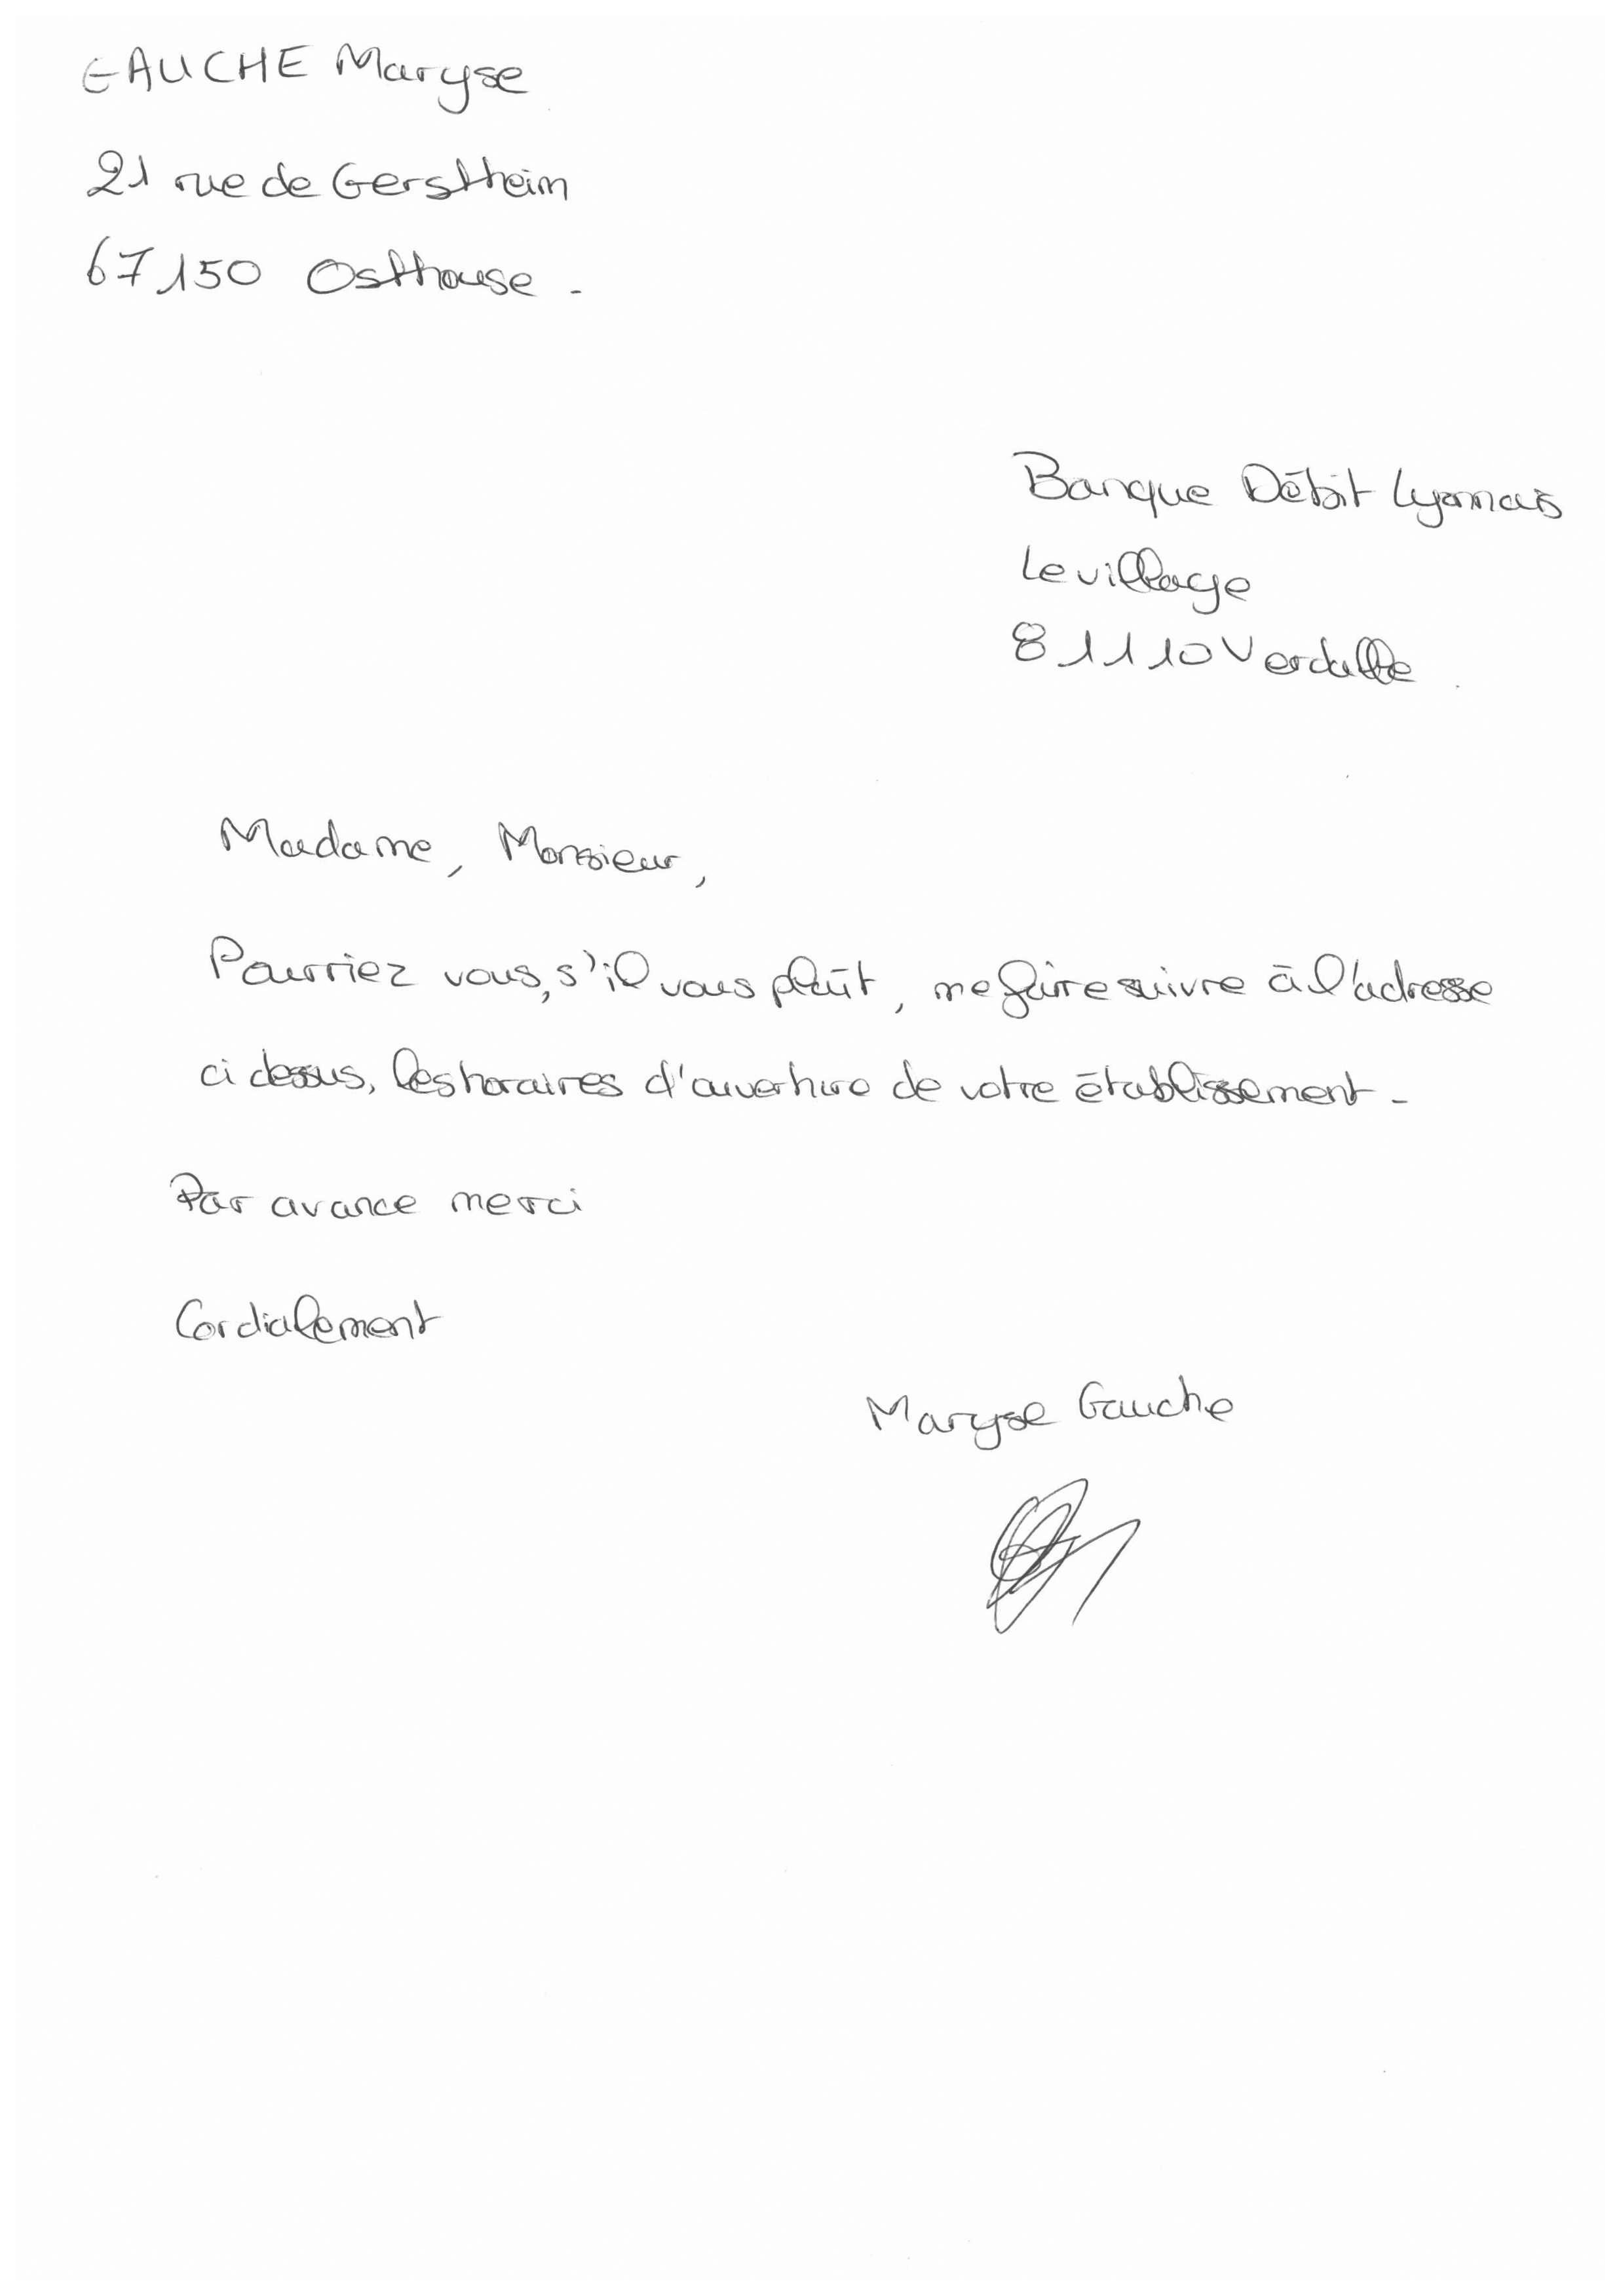 GAUCHE Maryse
21 rue de Gerstheim
67150 Osthouse.
Banque Débit Lyonnais
Le village
81110 Verdalle
Madame, Monsieur,
Pourriez vous, s'il vous plaît, me faire suivre à l'adresse
ci dessus, les horaires d'ouverture de votre établissement.
Par avance merci
Cordialement
Maryse Gauche